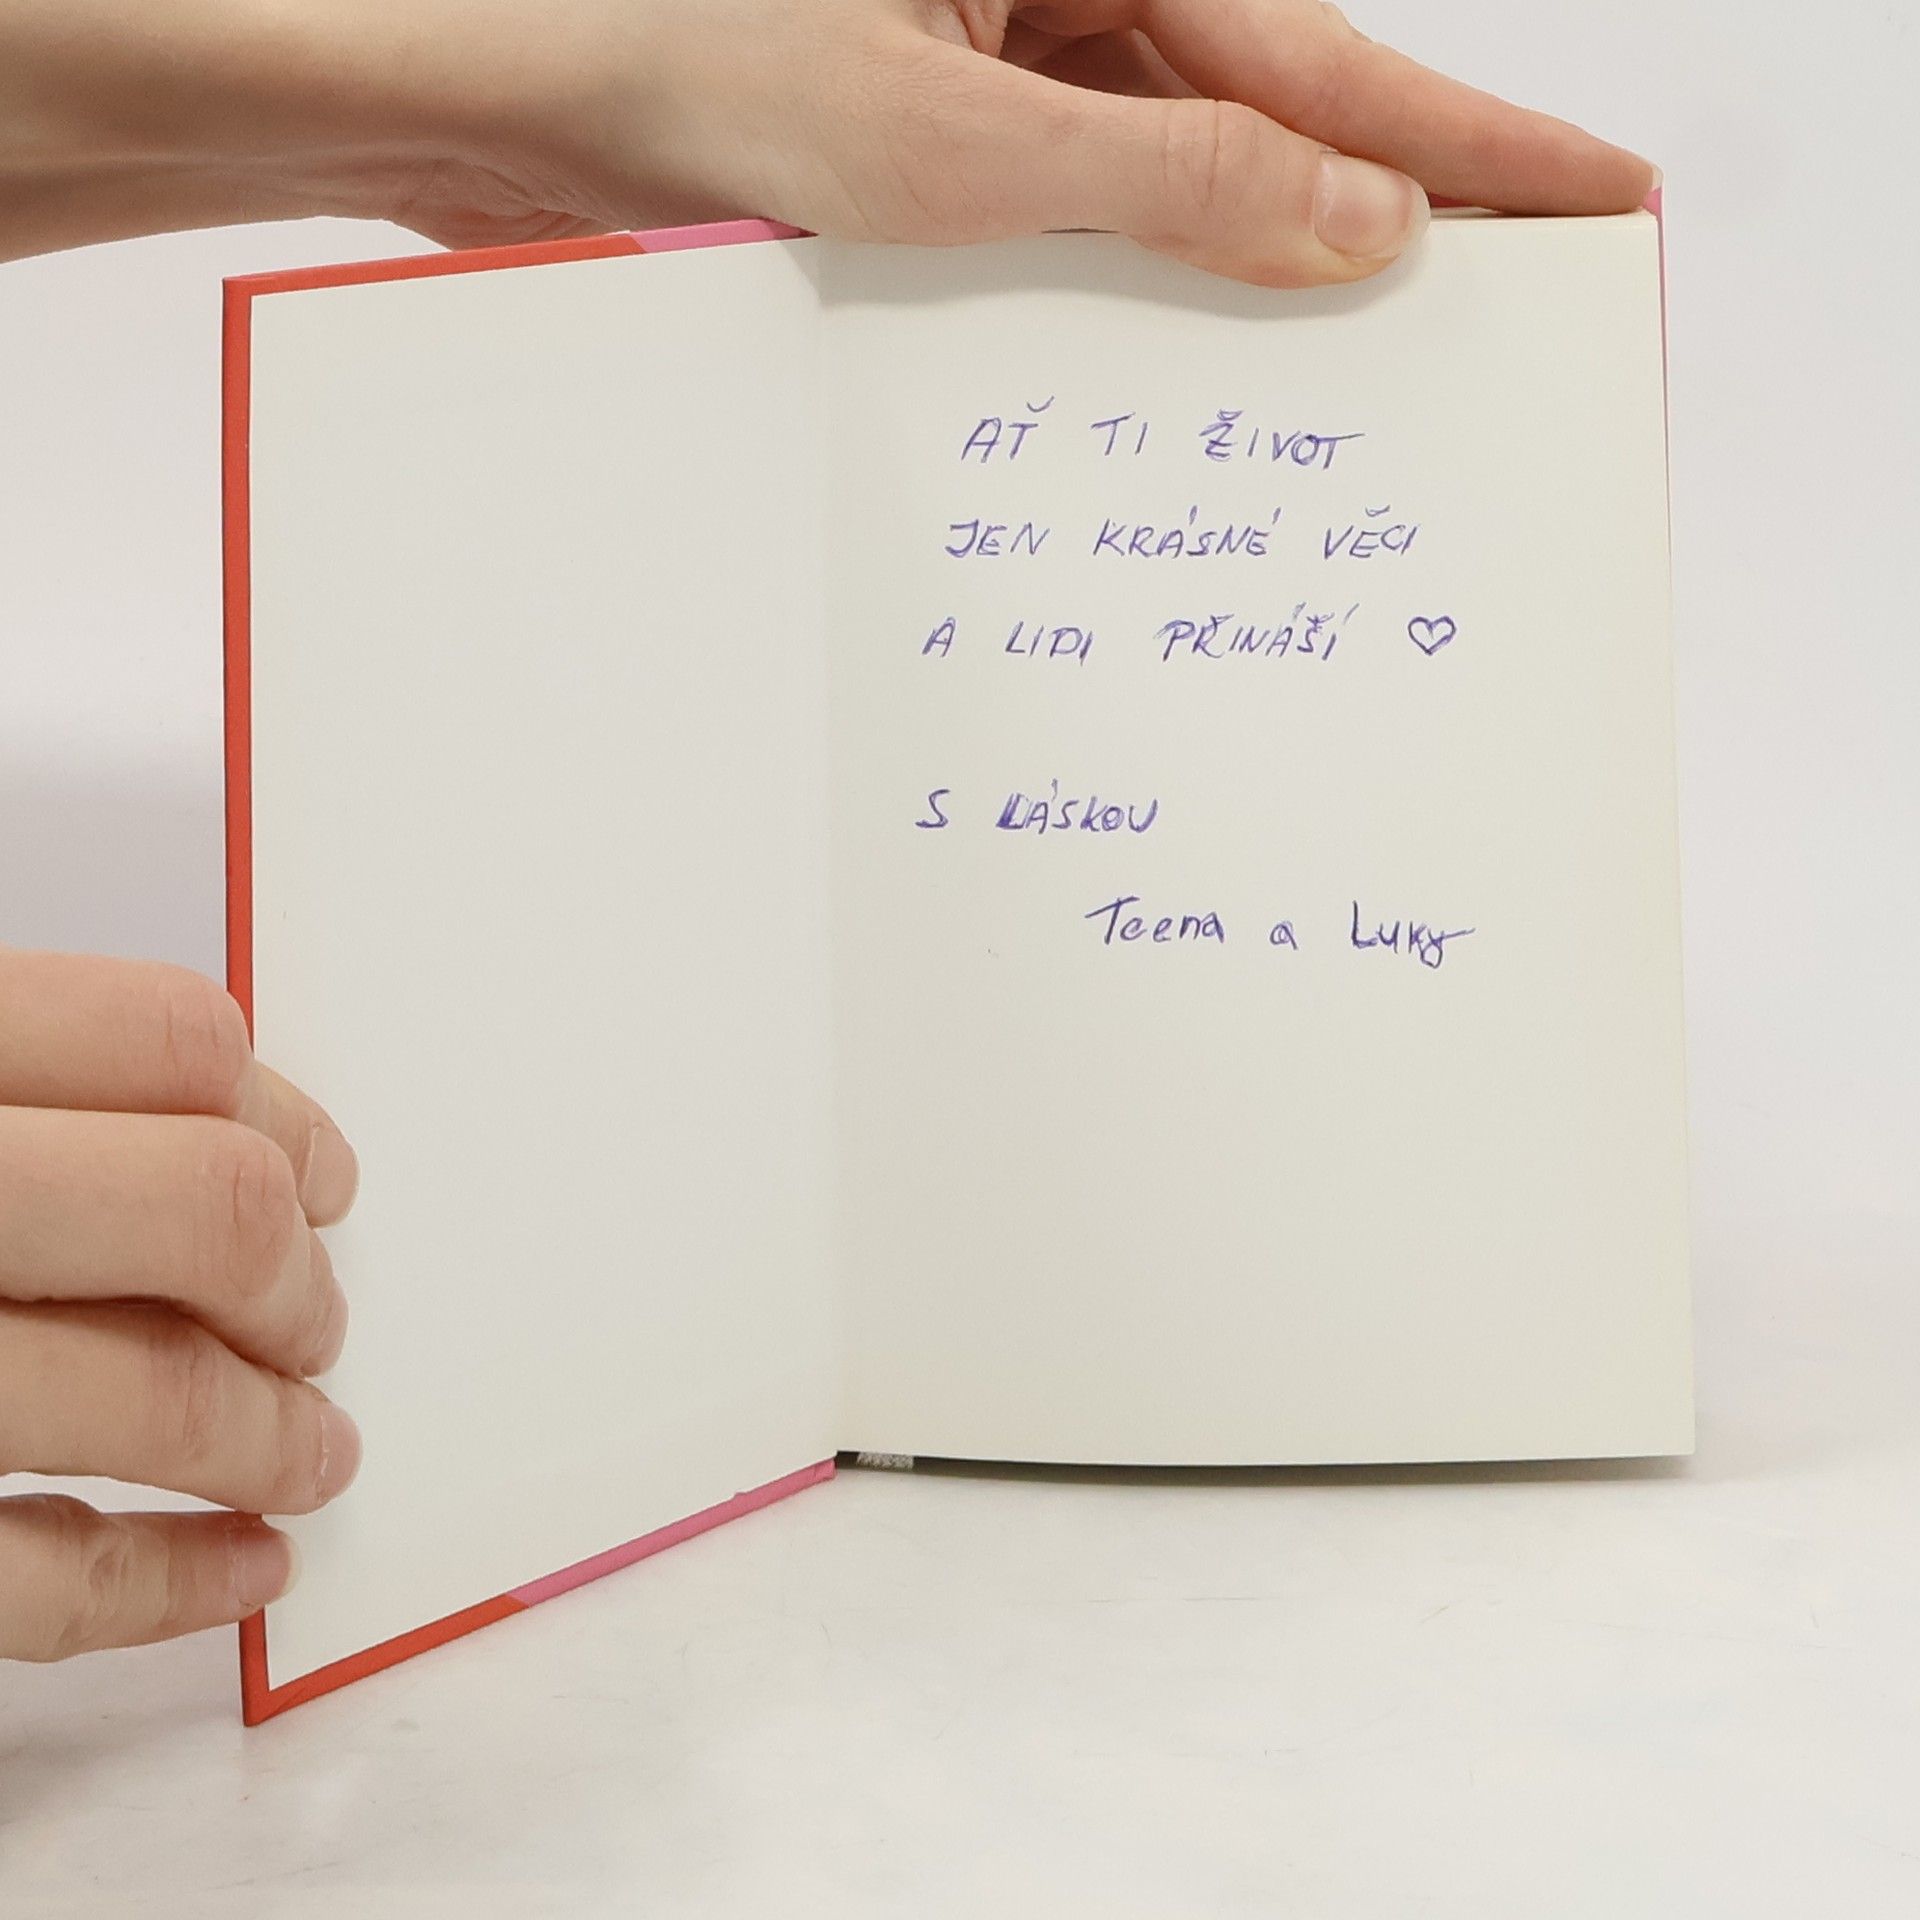 AŤ TI ŽIVOT
JEN KRÁSNÉ VĚCI
A LIDI PŘINÁŠÍ ♡
S LÁSKOU
Teena a Luky